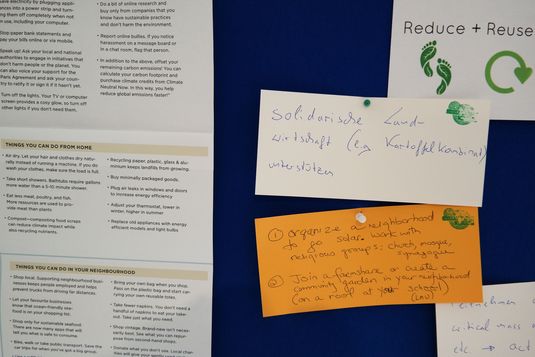 save electricity by plugging appli-
ances into a power strip and turn-
ing them off completely when not
in use, including your computer.
Stop paper bank statements and
pay your bills online or via mobile.
Speak up! Ask your local and national
authorities to engage in initiatives that
don't harm people or the planet. You
can also voice your support for the
Paris Agreement and ask your coun-
try to ratify it or sign it if it hasn't yet.
Turn off the lights. Your TV or computer
screen provides a cosy glow, so turn off
other lights if you don't need them.
Do a bit of online research and
buy only from companies that you
know have sustainable practices
and don't harm the environment.
Report online bullies. If you notice
harassment on a message board or
in a chat room, flag that person.
In addition to the above, offset your
remaining carbon emissions! You can
calculate your carbon footprint and
purchase climate credits from Climate
Neutral Now. In this way, you help
reduce global emissions faster!"
THINGS YOU CAN DO FROM HOME
Air dry. Let your hair and clothes dry natu-
rally instead of running a machine. If you do
wash your clothes, make sure the load is full.
Take short showers. Bathtubs require gallons
more water than a 5-10 minute shower.
Eat less meat, poultry, and fish.
More resources are used to pro-
vide meat than plants
Compost—composting food scraps
can reduce climate impact while
also recycling nutrients.
Recycling paper, plastic, glass & alu-
minium keeps landfills from growing.
Buy minimally packaged goods.
Plug air leaks in windows and doors
to increase energy efficiency
Adjust your thermostat, lower in
winter, higher in summer
Replace old appliances with energy
efficient models and light bulbs
THINGS YOU CAN DO IN YOUR NEIGHBOURHOOD
Shop local. Supporting neighbourhood busi-
nesses keeps people employed and helps
prevent trucks from driving far distances.
Let your favourite businesses
know that ocean-friendly sea-
food is on your shopping list.
Shop only for sustainable seafood.
There are now many apps that will
tell you what is safe to consume.
Bike, walk or take public transport. Save the
car trips for when you've got a big group.
Bring your own bag when you shop.
Pass on the plastic bag and start car-
rying your own reusable totes.
Take fewer napkins. You don't need a
handful of napkins to eat your take-
out. Take just what you need.
Shop vintage. Brand-new isn't neces-
sarily best. See what you can repur-
pose from second-hand shops.
Donate what you don't use. Local char-
Reduce + Reuse
Solidarische Land-
wirtschaft (e.g. Kartoffelkombinat)
unterstützen
① organize a neighborhood
to go solar. work with
religious groups: church, mosque,
synagogue
② Join a farmshare or create a
community garden in your neighborhood
(on a roof at your school)
critical mass
etc → act